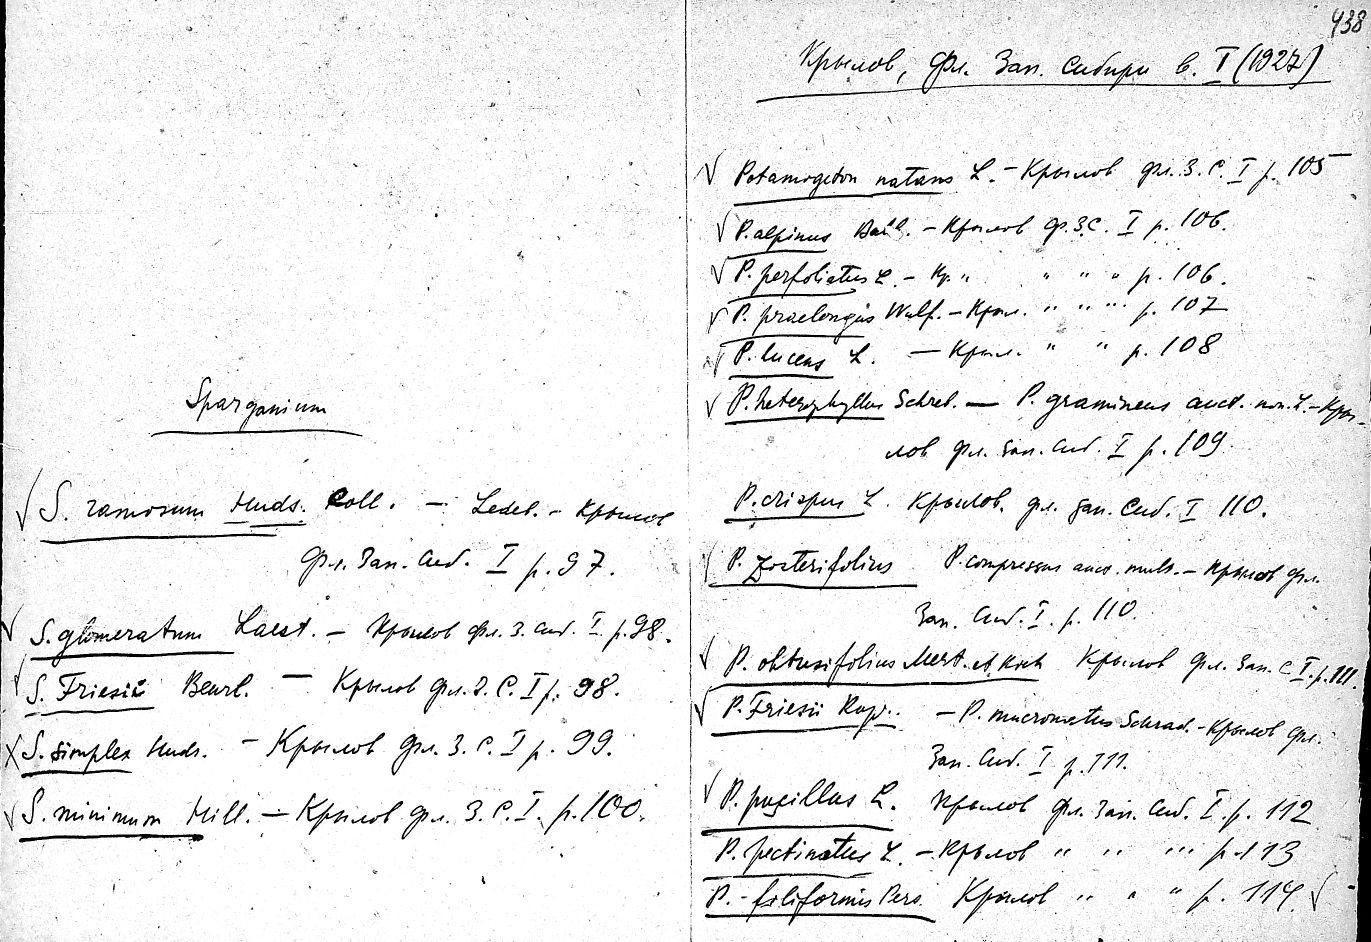 Sparganium
√ S. ramosum Huds. Coll. — Ledeb. - Крылов
Фл. Зап. Сиб. I p. 97.
√ S. glomeratum Laest. — Крылов Фл. З. Сиб. I. p. 98.
√ S. Friesii Beurl. — Крылов Фл. З. С. I p. 98.
X S. simplex Huds. - Крылов Фл. З. С. I p. 99.
√ S. minimum Hill. — Крылов фл. З. С. I. p. 100.
438
Крылов, Фл. Зап. Сибири в. I (1927)
√ Potamogeton natans L. - Крылов Фл. З. С. I p. 105
√ P. alpinus Balb. - Крылов Фл. З.С. I p. 106.
√ P. perfoliatus L. - Кр. " " " " p. 106.
√ P. praelongus Wulf. - Крыл. " " " " p. 107
√ P. lucens L. — Крыл. " " p. 108
√ P. heterophyllus Schreb. — P. gramineus auct. non. L. - Кры-
лов Фл. Зап. Сиб. I p. 109.
P. crispus L. Крылов. Фл. Зап. Сиб. I 110.
√ P. zosterifolius P. compressus auct. mult. - Крылов Фл.
Зап. Сиб. I. p. 110.
√ P. obtusifolius Mert. et Koch Крылов Фл. Зап. С. I. p. 111.
√ P. Friesii Rupr. - P. mucronatus Schrad. - Крылов Фл.
Зап. Сиб. I p. 111.
√ P. pusillus L. Крылов Фл. Зап. Сиб. I. p. 112
P. pectinatus L. - Крылов " " " p. 113
P. filiformis Pers. Крылов " " " p. 114. √